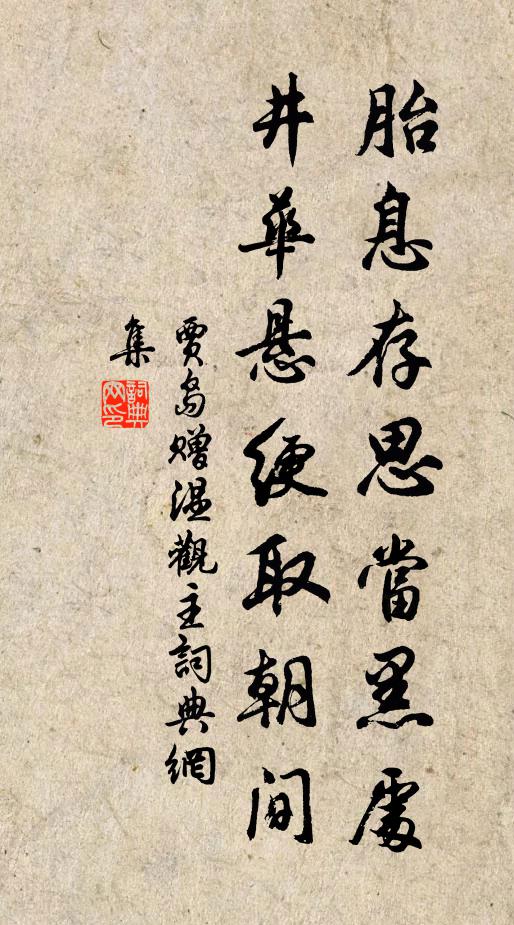 胎息存思當黑處
井華懸綆取朝間
賈島贈溫觀主詞典網
集
詞典網印